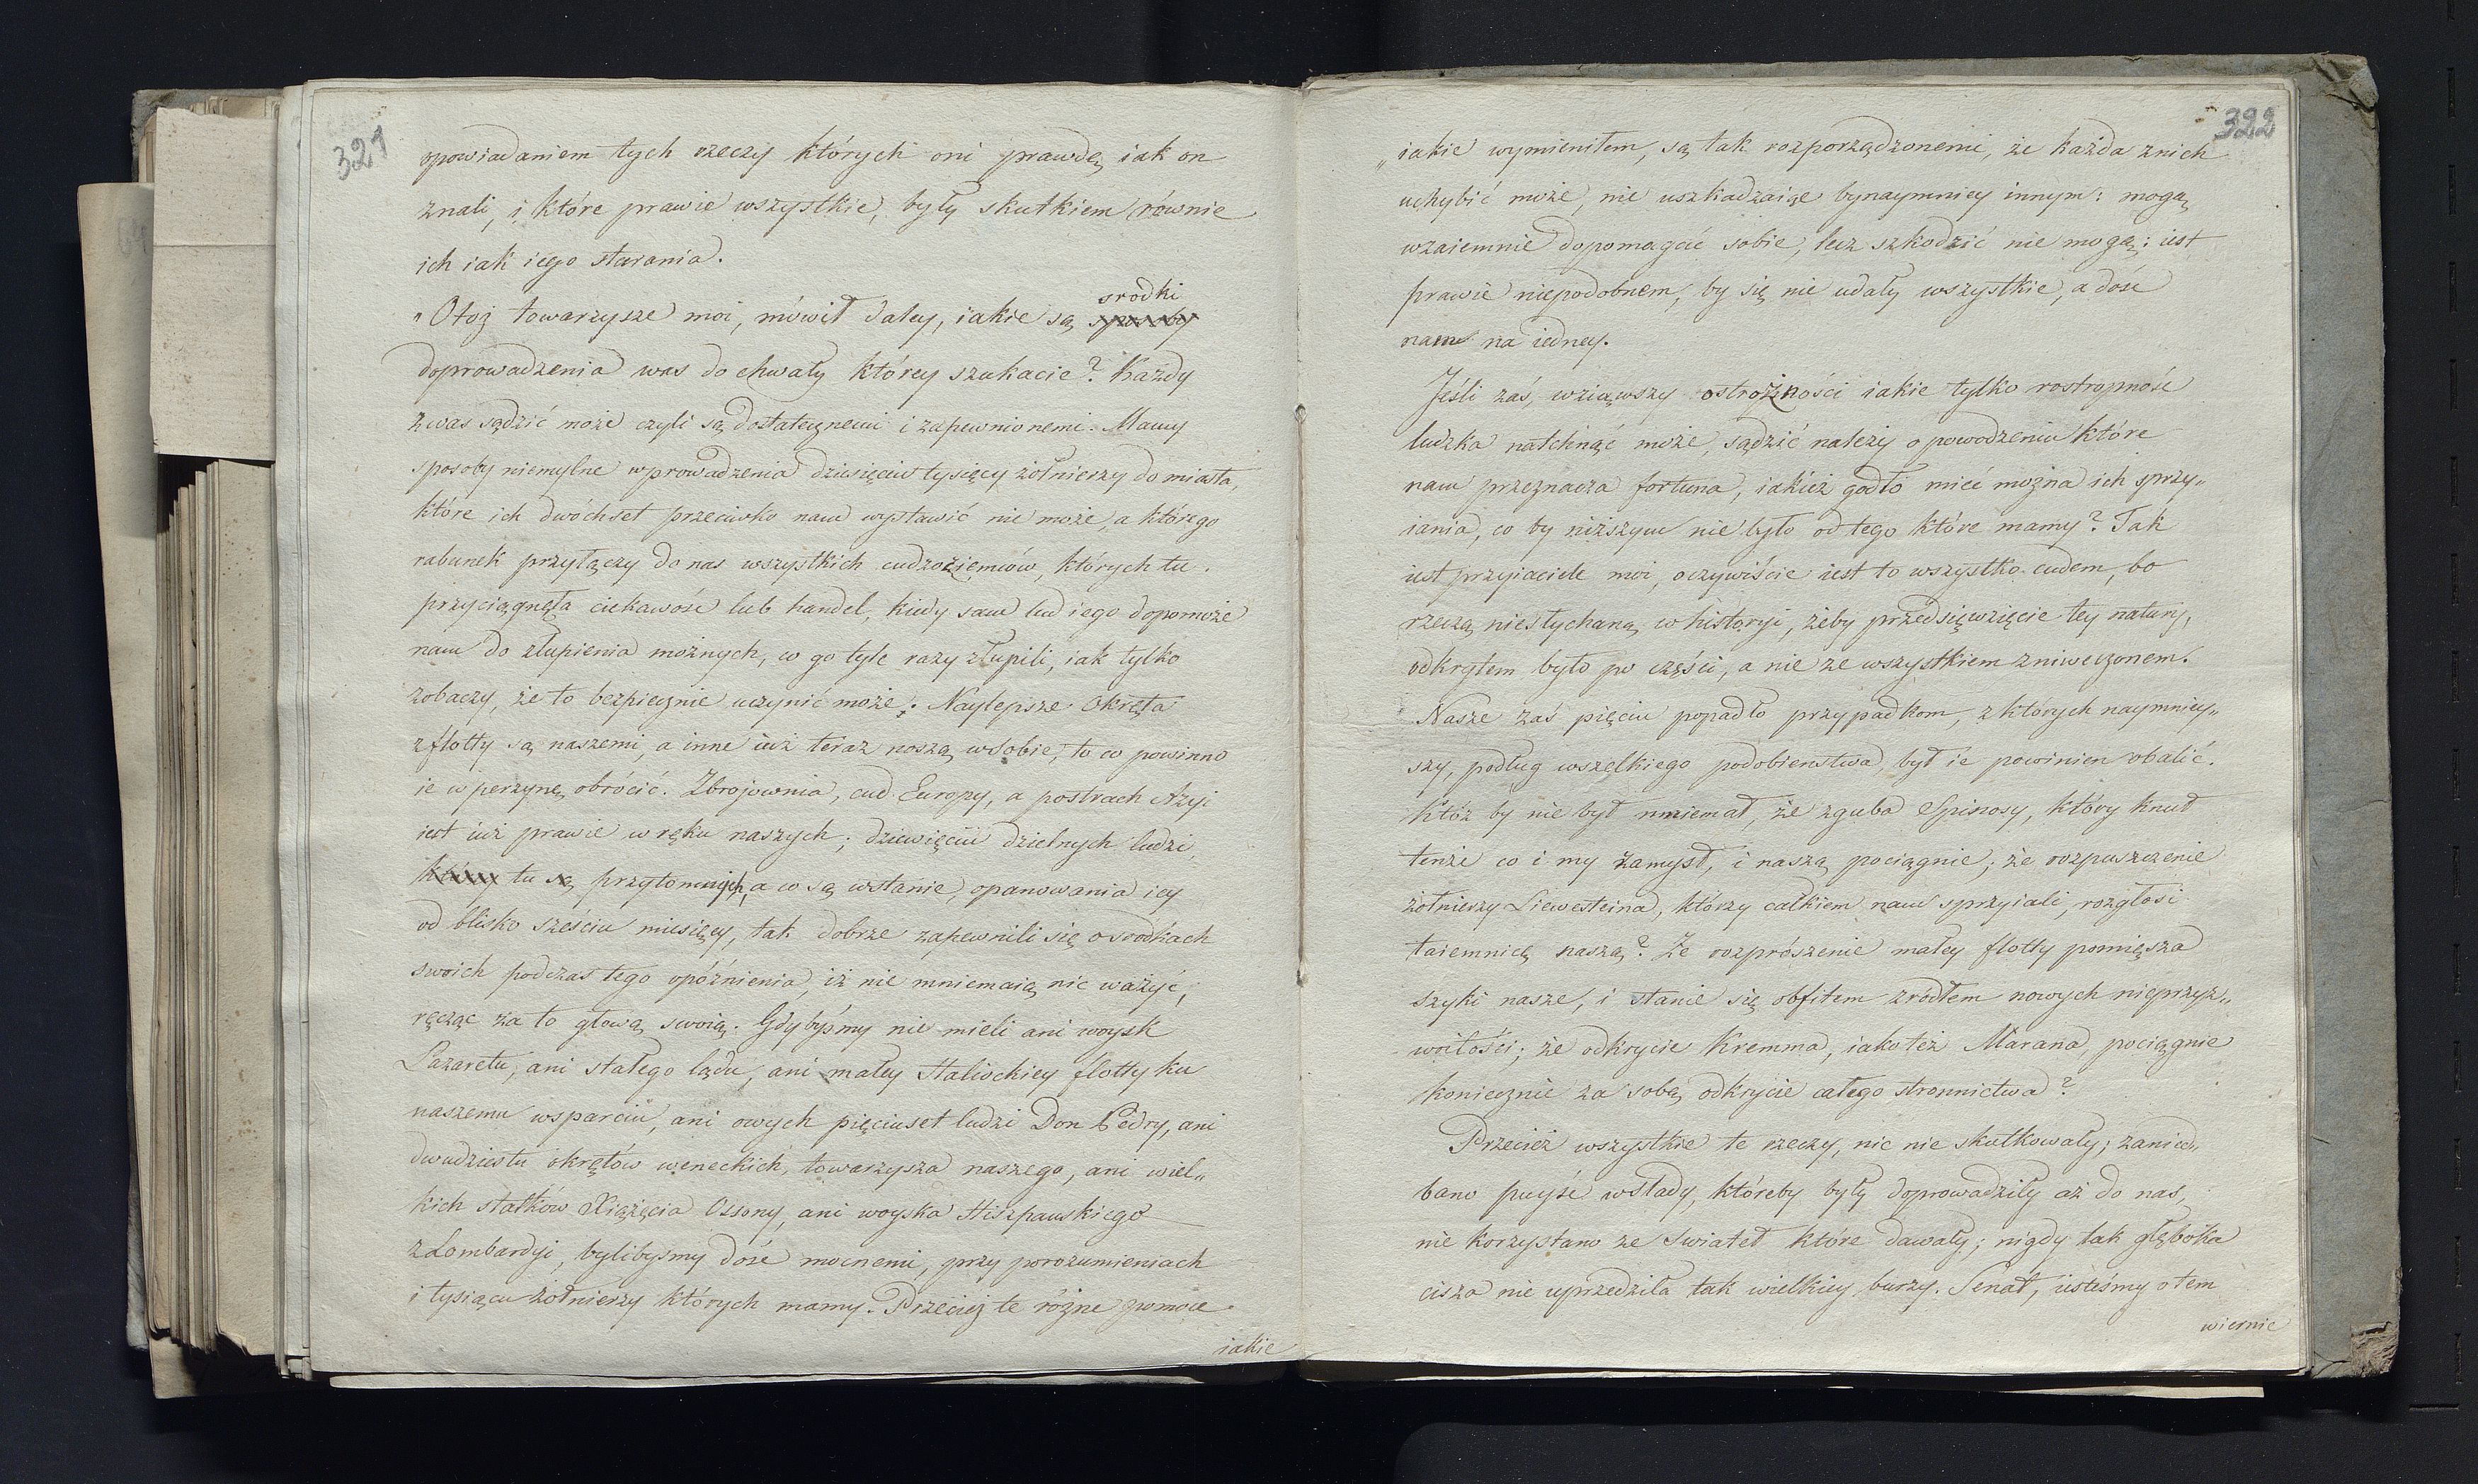 321
opowiadaniem tych rzeczy których oni prawdę iak on
znali, i które prawie wszystkie, były skutkiem równie
ich iak iego starania.
srodki
"Otoż towarzysze moi, mówił daley, iakie są sposoby
doprowadzenia was do chwały którey szukacie? Każdy
zwas sądzić może czyli są dostatecznemi i zapewnionemi. Mamy
sposoby niemylne wprowadzenia dziesięciu tysięcy żołnierzy do miasta,
które ich dwóchset przeciwko nam wystawić nie może, a którego
rabunek przyłączy do nas wszystkich cudzoziemców, których tu
przyciągnęła ciekawość lub handel, kiedy sam lud iego dopomoże
nam do złupienia możnych, co go tyle razy złupili, iak tylko
zobaczy, że to bezpiecznie uczynić może; Naylepsze okręta
zflotty są naszemi, a inne iuż teraz noszą wsobie, to co powinno
ie w perzynę obrócić. Zbrojownia, cud Europy, a postrach Azyi
iest iuż prawie w ręku naszych; dziewięciu dzielnych ludzi
którzy tu są przytomnych, a co są wstanie, opanowania iey
od blisko sześciu miesięcy, tak dobrze zapewnili się o srodkach
swoich podczas tego opóźnienia, iż nie mniemaią nic ważyć,
ręcząc za to głową swoią. Gdybyśmy nie mieli ani woysk
Lazaretu, ani stałego lądu, ani małey Haliockiey flotty ku
naszemu wsparciu, ani owych pięciuset ludzi Don Pedry, ani
dwudziestu okrętów weneckich, towarzysza naszego, ani wiel„
kich statków Xiążęcia Ossony, ani woyska Hiszpanskiego
z Lombardyi, bylibysmy dość mocnemi, przy porozumieniach
i tysiącu żołnierzy których mamy. Przecież te różne pomoce
iakie
322
„iakie wymieniłem, są tak rozporządzonemi, że każda znich
uchybić może, nie uszkadzaiąc bynaymniey innym: mogą
wzaiemnie dopomagać sobie, lecz szkodzić nie mogą: iest
prawie niepodobnem, by się nie udały wszystkie, a dość
nam na iedney.
Jeśli zaś, wziąwszy ostrożności iakie tylko rostropność
ludzka natchnąć może, sądzić należy o powodzeniu które
nam przeznacza fortuna, iakież godło mieć można ich sprzy„
iania, co by niższym nie było od tego które mamy? Tak
iest przyiaciele moi, oczywiście iest to wszystko cudem, bo
rzeczą niesłychaną w historyi, żeby przedsięwzięcie tey natury,
odkrytem było po części, a nie ze wszystkiem zniweczonem.
Nasze zaś pięciu popadło przypadkom, z których naymniey„
szy, podług wszelkiego podobienstwa, był ie powinien obalić.
Któż by nie był mniemał, że zguba Spinosy, który knuł
tenże co i my zamysł, i naszą pociągnie; że rozpuszczenie
żołnierzy Liewesteina, którzy całkiem nam sprzyiali, rozgłosi
taiemnicę naszą? Że rozprószenie małey flotty pomięsza
szyki nasze, i stanie się obfitem zródłem nowych nieprzyz„
woitości; że odkrycie Kremma, iako też Marana, pociągnie
koniecznie za sobą odkrycie całego stronnictwa?
Przecież wszystkie te rzeczy, nic nie skutkowały; zanied„
bano puyść wślady, któreby były doprowadziły aż do nas,
nie korzystano ze swiateł które dawały; nigdy tak głęboka
cisza nie uprzedziła tak wielkiey burzy. Senat, iesteśmy o tem
wiernie